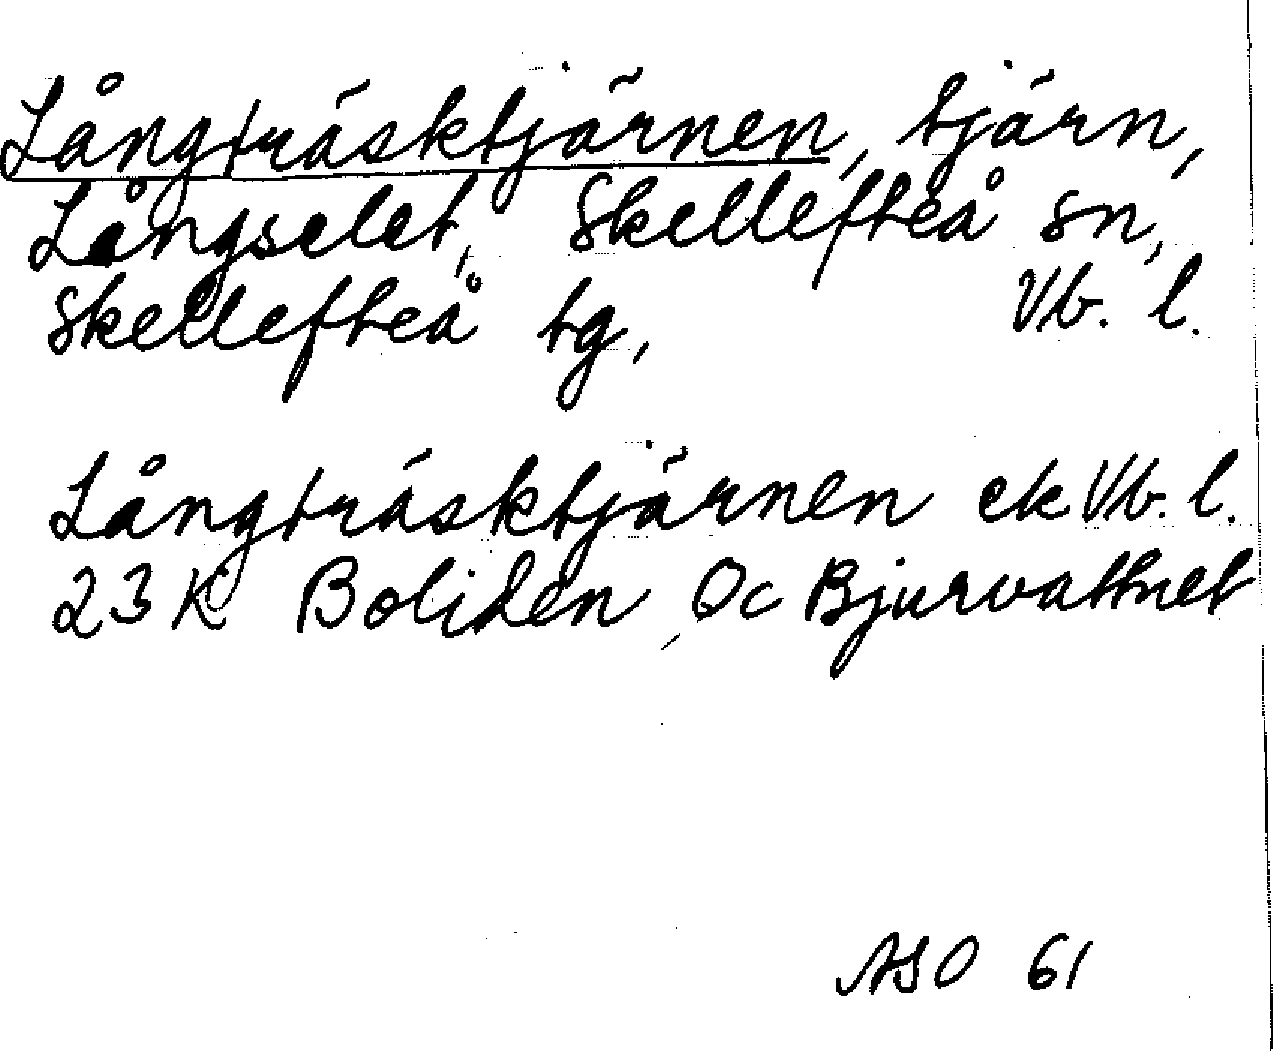 Långträsktjärnen, tjärn,
Långselet, Skellefteå sn,
Skellefteå tg, Vb. l.
Långträsktjärnen ek Vb. l.
23 K Boliden, Oc Bjurvattnet
ASO 61